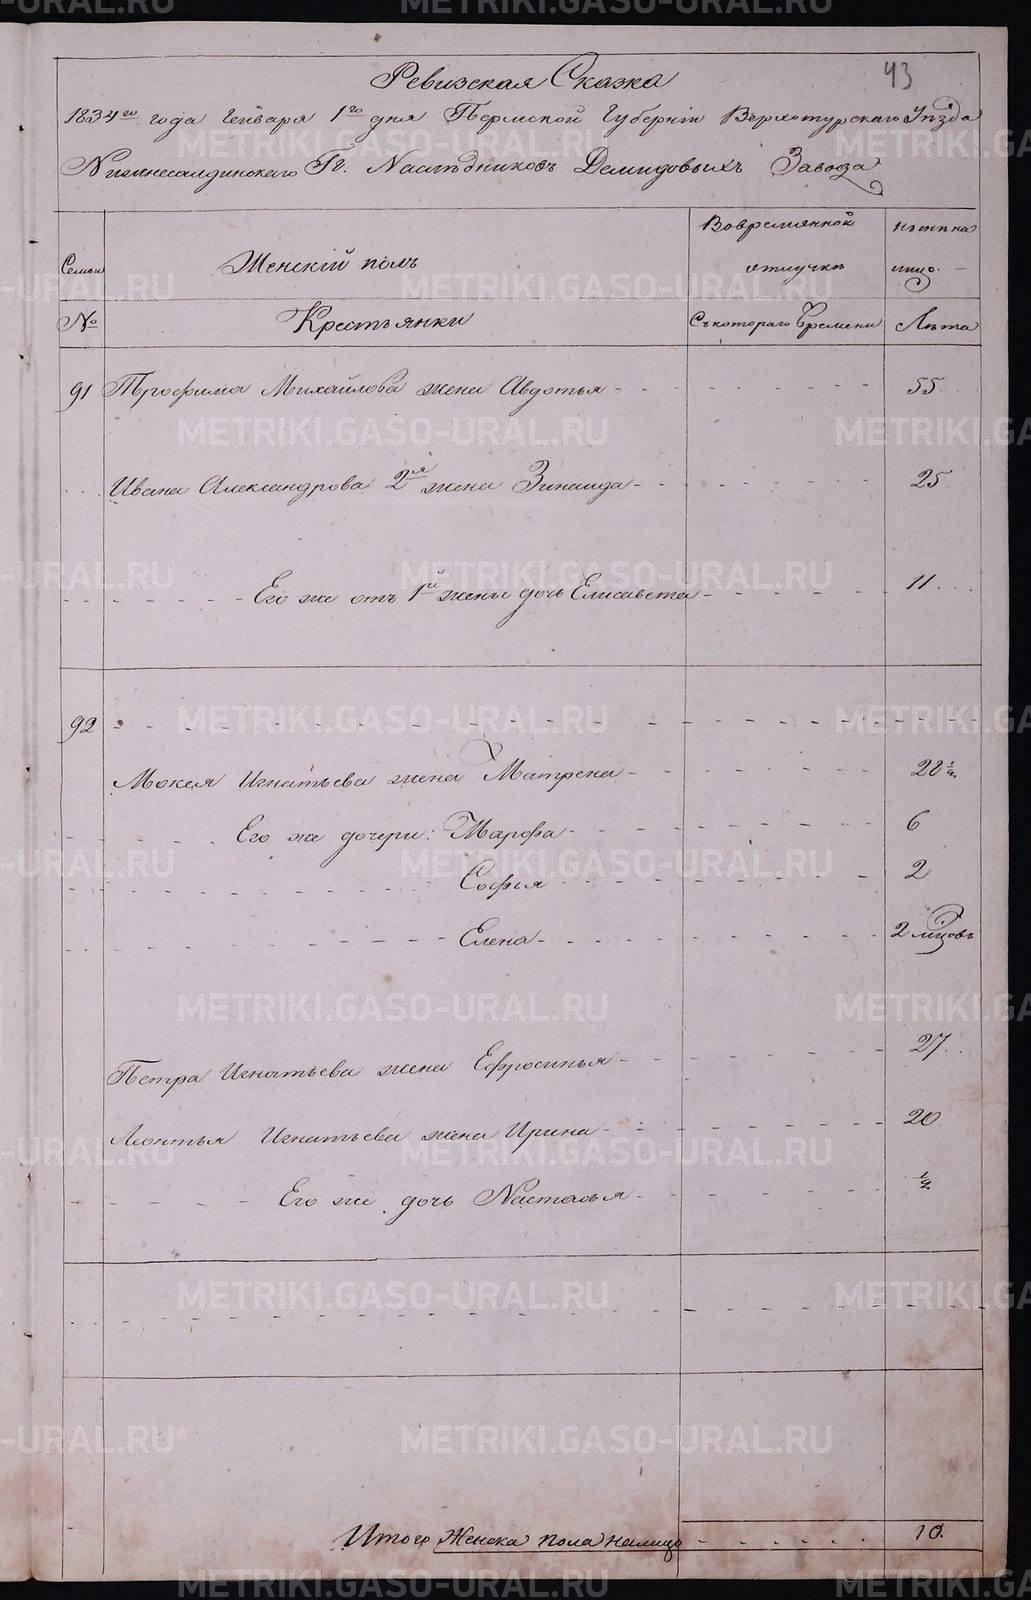 43
Ревизская Сказка
1834го года Генваря 1го дня Пермской Губернiи Верхотурскаго Уѣзда
Нижнесалдинскаго Гг. Наслѣдниковъ Демидовыхъ Завода
Семьи Женскiй полъ Вовремянной отлучкѣ нынѣ на лицо.
№ Крестьянки Съкотораго Времени Лѣта
91 Трофима Михайлова жена Авдотья 55
Ивана Александрова 2я жена Зинаида 25
Его же отъ 1й жены дочь Елисавета 11
92
Мокея Игнатьева жена Матрена 28 1/2
Его же дочери: Марфа 6
Софья 2
Елена 2 мѣсцовъ
Петра Игнатьева жена Ефросинья 27
Леонтья Игнатьева жена Ирина 20
Его же дочь Настасья 1/2
Итого Женска пола налицо 10.
METRIKI.GASO-URAL.RU